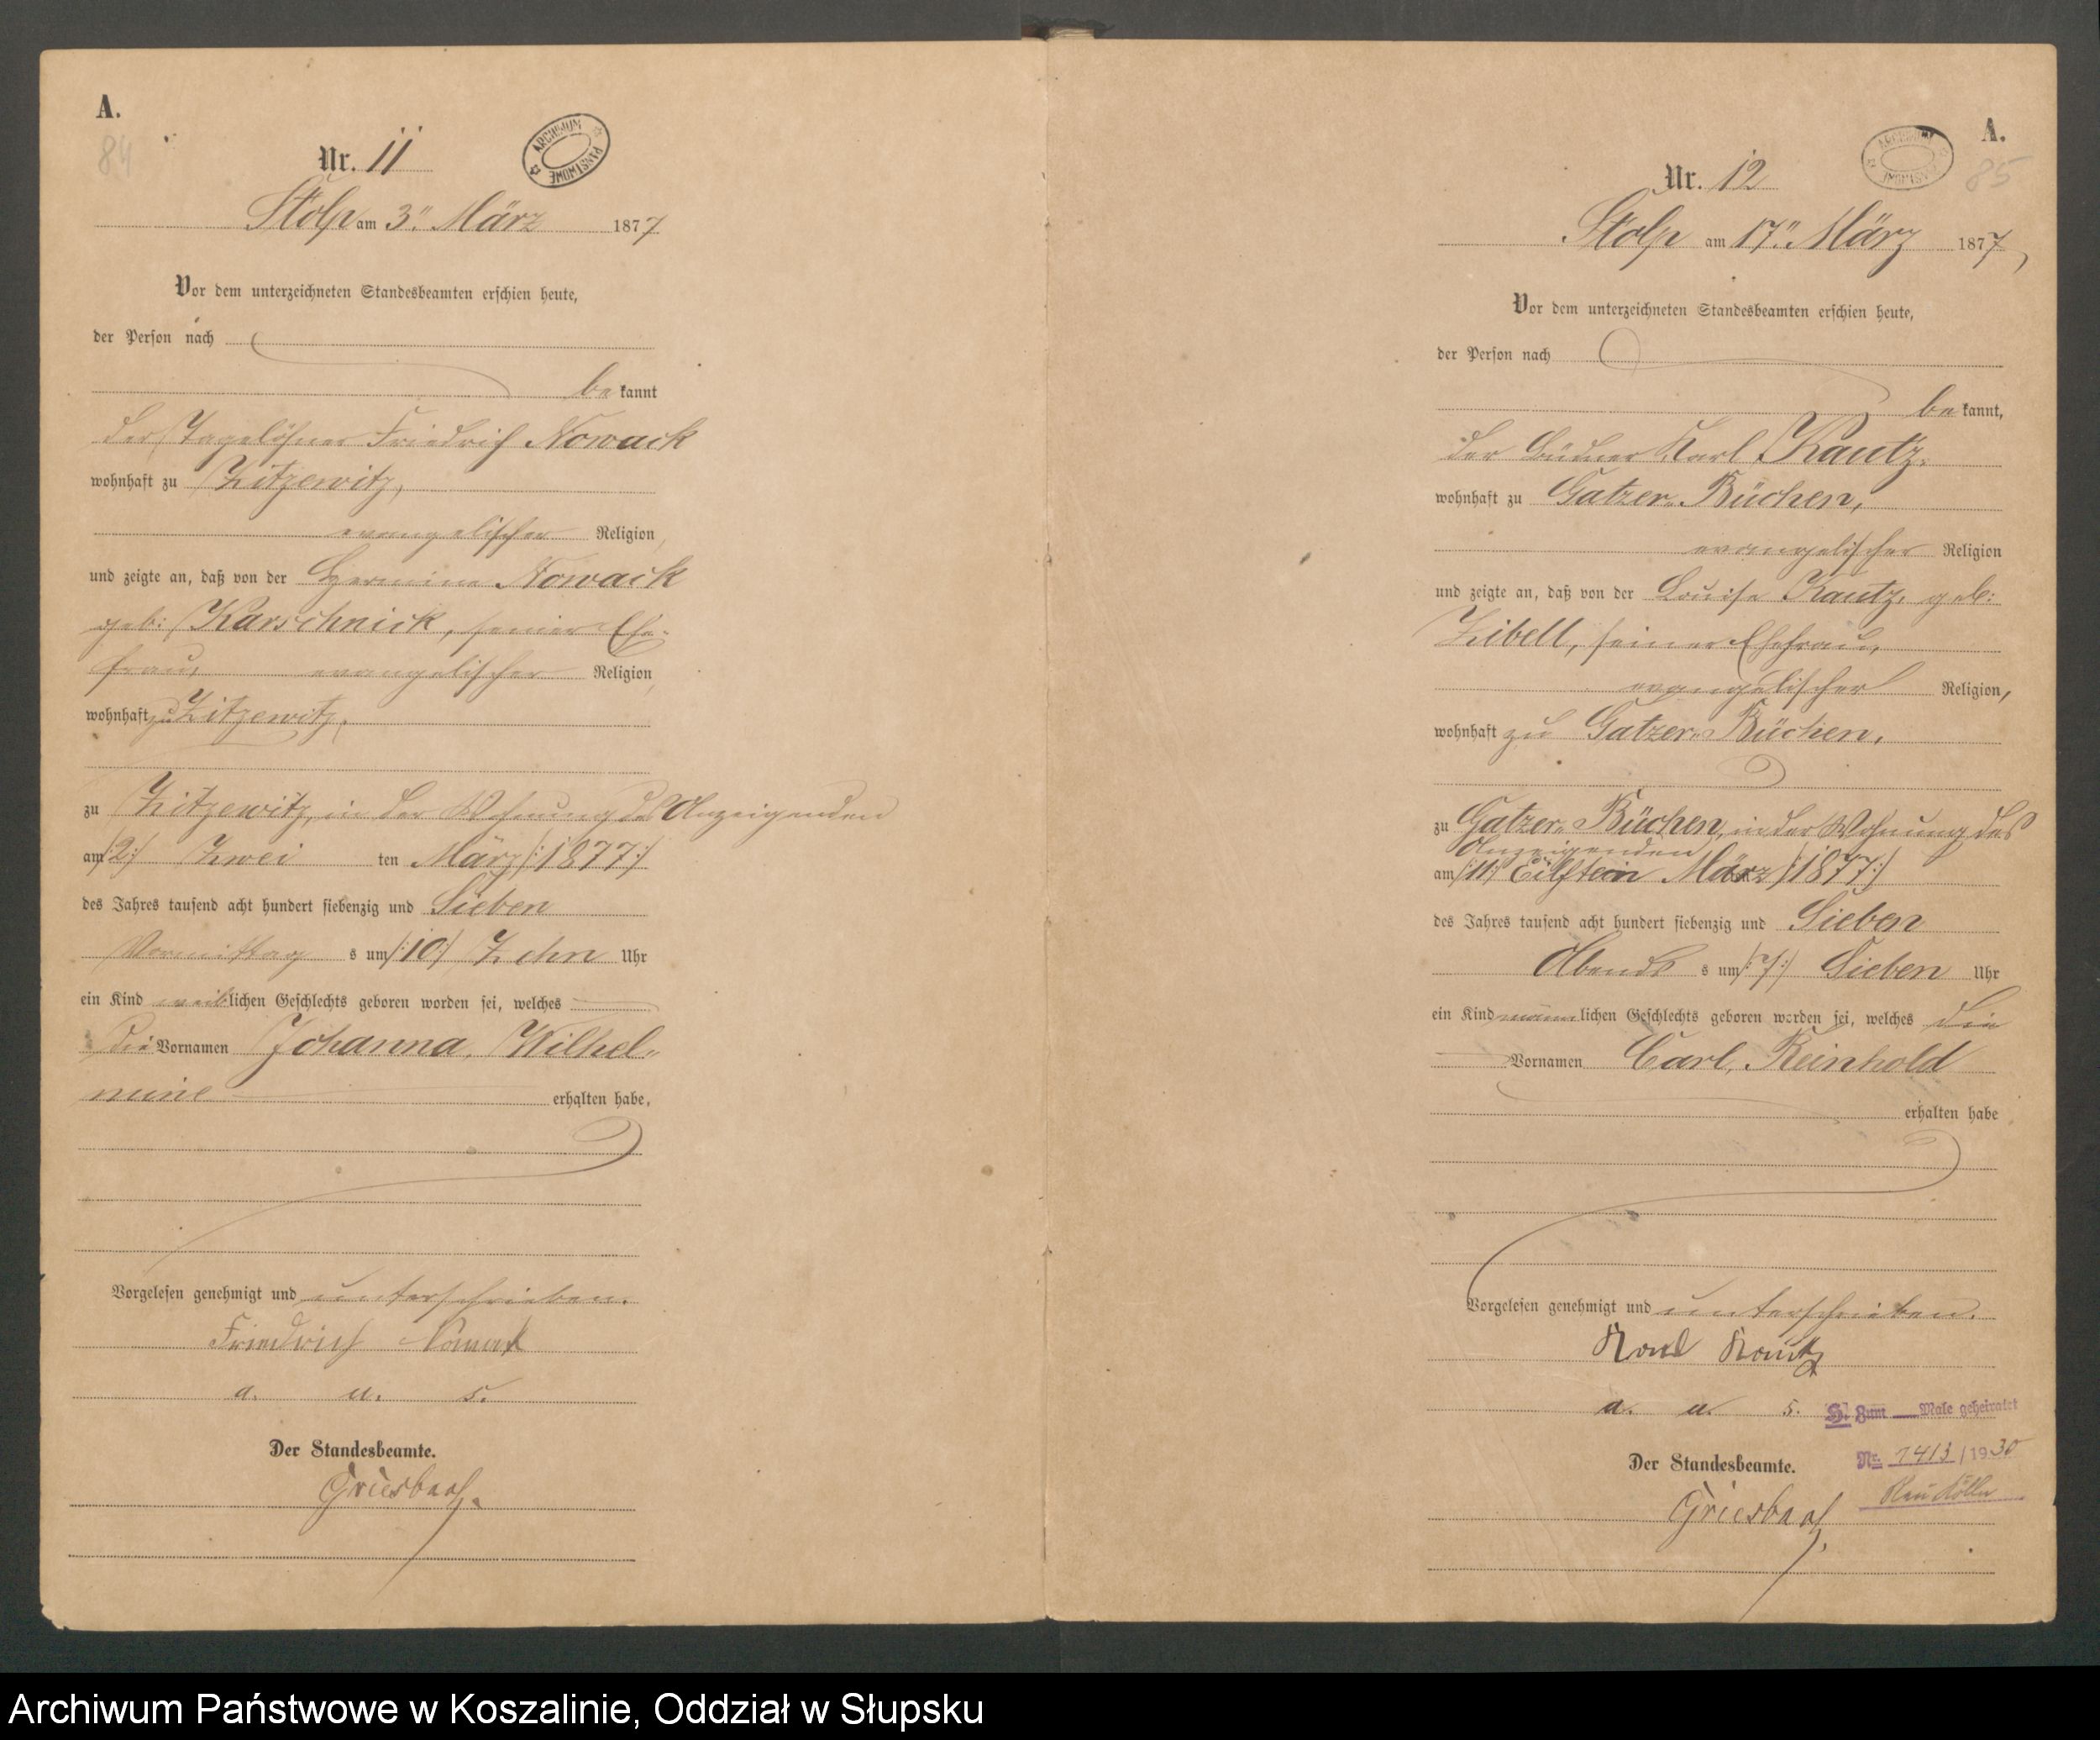 A.
84
Nr. 11
ARCHIWUM PAŃSTWOWE
Stolp am 3ten März 1877
Vor dem unterzeichneten Standesbeamten erschien heute,
der Person nach
bekannt
der Tagelöhner Friedrich Nowack
wohnhaft zu Zitzewitz,
evangelischer Religion
und zeigte an, daß von der Hermine Nowack
geb: Karschnick, seiner Ehe-
frau, evangelischer Religion
wohnhaft zu Zitzewitz,
zu Zitzewitz, in der Wohnung des Anzeigenden
am /:2:/ Zwei ten März /:1877:/
des Jahres tausend acht hundert siebenzig und Sieben
Vormittag s um /:10:/ Zehn Uhr
ein Kind weiblichen Geschlechts geboren worden sei, welches
die Vornamen Johanna, Wilhel-
mine erhalten habe,
Vorgelesen genehmigt und unterschrieben.
Friedrich Nowack
a. u. s.
Der Standesbeamte.
Griesbach.
A.
85
Nr. 12
ARCHIWUM PAŃSTWOWE
Stolp am 17ten März 1877,
Vor dem unterzeichneten Standesbeamten erschien heute,
der Person nach
bekannt,
der Büdner Karl Kautz,
wohnhaft zu Gatzer-Büchen,
evangelischer Religion
und zeigte an, daß von der Louise Kautz, geb:
Zibell, seiner Ehefrau,
evangelischer Religion,
wohnhaft zu Gatzer-Büchen,
zu Gatzer-Büchen, in der Wohnung des
Anzeigenden
am /:11:/ Eilften März /:1877:/
des Jahres tausend acht hundert siebenzig und Sieben
Abends s um /:7:/ Sieben Uhr
ein Kind männlichen Geschlechts geboren worden sei, welches die
Vornamen Carl, Reinhold
erhalten habe
Vorgelesen genehmigt und unterschrieben.
Karl Kautz
a. u. s.
H. Zum Male geheiratet
Der Standesbeamte.
Nr. 1413/1930
Neukölln
Griesbach,
Archiwum Państwowe w Koszalinie, Oddział w Słupsku